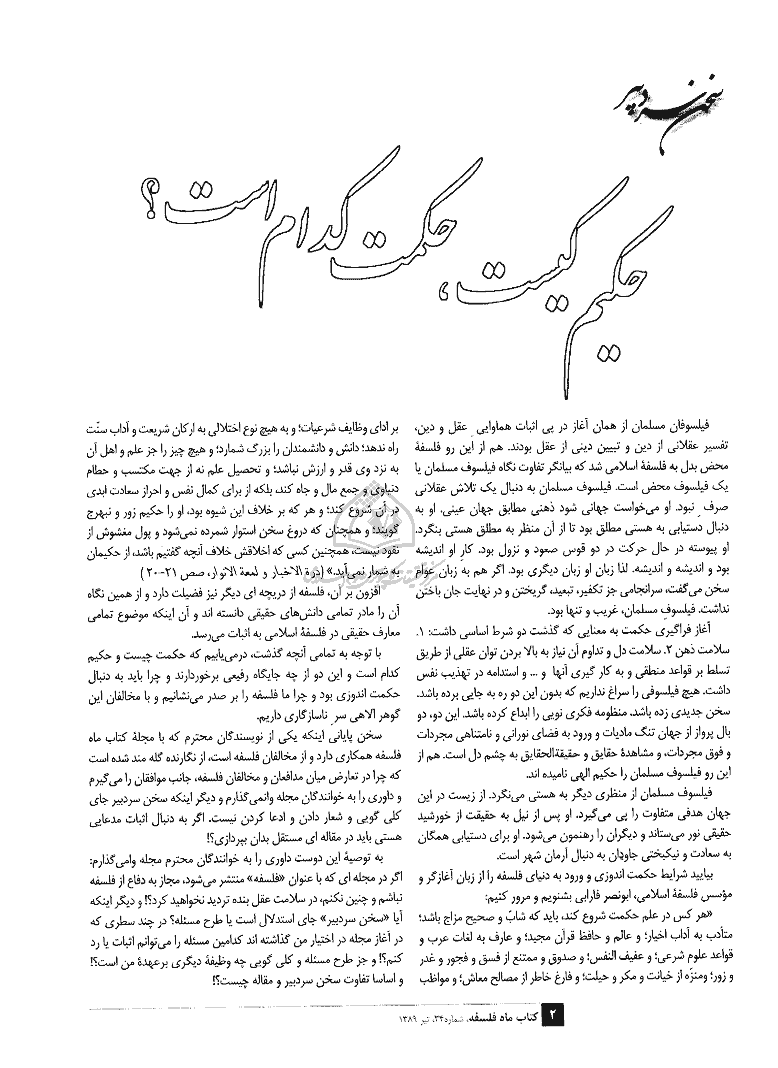 سخن سردبیر
حکیم کیست، حکمت کدام است؟
فیلسوفان مسلمان از همان آغاز در پی اثبات هماوایی عقل و دین،
تفسیر عقلانی از دین و تبیین دینی از عقل بودند. هم از این رو فلسفهٔ
محض بدل به فلسفهٔ اسلامی شد که بیانگر تفاوت نگاه فیلسوف مسلمان با
یک فیلسوف محض است. فیلسوف مسلمان به دنبال یک تلاش عقلانی
صرف نبود. او می‌خواست جهانی شود ذهنی مطابق جهان عینی. او به
دنبال دستیابی به هستی مطلق بود تا از آن منظر به مطلق هستی بنگرد.
او پیوسته در حال حرکت در دو قوس صعود و نزول بود. کار او اندیشه
بود و اندیشه و اندیشه. لذا زبان او زبان دیگری بود. اگر هم به زبان عوام
سخن می‌گفت، سرانجامی جز تکفیر، تبعید، گریختن و در نهایت جان باختن
نداشت. فیلسوفِ مسلمان، غریب و تنها بود.
آغاز فراگیری حکمت به معنایی که گذشت دو شرط اساسی داشت: ۱.
سلامت ذهن ۲. سلامت دل و تداوم آن نیاز به بالا بردن توان عقلی از طریق
تسلط بر قواعد منطقی و به کار گیری آنها و ... و استدامه در تهذیب نفس
داشت. هیچ فیلسوفی را سراغ نداریم که بدون این دو ره به جایی برده باشد.
سخن جدیدی زده باشد، منظومه فکری نویی را ابداع کرده باشد. این دو، دو
بال پرواز از جهان تنگ مادیات و ورود به فضای نورانی و نامتناهی مجردات
و فوق مجردات، و مشاهدهٔ حقایق و حقیقةالحقایق به چشم دل است. هم از
این رو فیلسوف مسلمان را حکیم الهی نامیده اند.
فیلسوف مسلمان از منظری دیگر به هستی می‌نگرد. از زیست در این
جهان هدفی متفاوت را پی می‌گیرد. او پس از نیل به حقیقت از خورشید
حقیقی نور می‌ستاند و دیگران را رهنمون می‌شود. او برای دستیابی همگان
به سعادت و نیکبختی جاودان به دنبال آرمان شهر است.
بیایید شرایط حکمت اندوزی و ورود به دنیای فلسفه را از زبان آغازگر و
مؤسس فلسفهٔ اسلامی، ابونصر فارابی بشنویم و مرور کنیم:
«هر کس در علم حکمت شروع کند، باید که شابّ و صحیح مزاج باشد؛
متأدب به آداب اخیار؛ و عالم و حافظ قرآن مجید؛ و عارف به لغات عرب و
قواعد علوم شرعی؛ و عفیف النفس؛ و صدوق و ممتنع از فسق و فجور و غدر
و زور؛ ومنزّه از خیانت و مکر و حیلت؛ و فارغ خاطر از مصالح معاش؛ و مواظب
بر ادای وظایف شرعیات؛ و به هیچ نوع اختلالی به ارکان شریعت و آداب سنّت
راه ندهد؛ دانش و دانشمندان را بزرگ شمارد؛ و هیچ چیز را جز علم و اهل آن
به نزد وی قدر و ارزش نباشد؛ و تحصیل علم نه از جهت مکتسب و حطام
دنیاوی و جمع مال و جاه کند، بلکه از برای کمال نفس و احراز سعادت ابدی
در آن شروع کند؛ و هر که بر خلاف این شیوه بود، او را حکیم زور و نبهرج
گویند؛ و همچنان که دروغ سخن استوار شمرده نمی‌شود و پول مغشوش از
نقود نیست، همچنین کسی که اخلاقش خلاف آنچه گفتیم باشد، از حکیمان
به شمار نمی‌آید.» (درة الاخبار و لمعة الانوار، صص ۲۱-۲۰)
افزون بر آن، فلسفه از دریچه ای دیگر نیز فضیلت دارد و از همین نگاه
آن را مادر تمامی دانش‌های حقیقی دانسته اند و آن اینکه موضوع تمامی
معارف حقیقی در فلسفهٔ اسلامی به اثبات می‌رسد.
با توجه به تمامی آنچه گذشت، درمی‌یابیم که حکمت چیست و حکیم
کدام است و این دو از چه جایگاه رفیعی برخوردارند و چرا باید به دنبال
حکمت اندوزی بود و چرا ما فلسفه را بر صدر می‌نشانیم و با مخالفان این
گوهر الاهی سرِ ناسازگاری داریم.
سخن پایانی اینکه یکی از نویسندگان محترم که با مجلهٔ کتاب ماه
فلسفه همکاری دارد و از مخالفان فلسفه است، از نگارنده گله مند شده است
که چرا در تعارض میان مدافعان و مخالفان فلسفه، جانب موافقان را می‌گیرم
و داوری را به خوانندگان مجله وانمی‌گذارم و دیگر اینکه سخن سردبیر جای
کلی گویی و شعار دادن و ادعا کردن نیست. اگر به دنبال اثبات مدعایی
هستی باید در مقاله ای مستقل بدان بپردازی؟!
به توصیهٔ این دوست داوری را به خوانندگان محترم مجله وامی‌گذارم:
اگر در مجله ای که با عنوان «فلسفه» منتشر می‌شود، مجاز به دفاع از فلسفه
نباشم و چنین نکنم، در سلامت عقل بنده تردید نخواهید کرد؟! و دیگر اینکه
آیا «سخن سردبیر» جای استدلال است یا طرح مسئله؟ در چند سطری که
در آغاز مجله در اختیار من گذاشته اند کدامین مسئله را می‌توانم اثبات یا رد
کنم؟! و جز طرح مسئله و کلی گویی چه وظیفهٔ دیگری برعهدهٔ من است؟!
و اساسا تفاوت سخن سردبیر و مقاله چیست؟!
۲ کتاب ماه فلسفه، شماره۳۴، تیر ۱۳۸۹